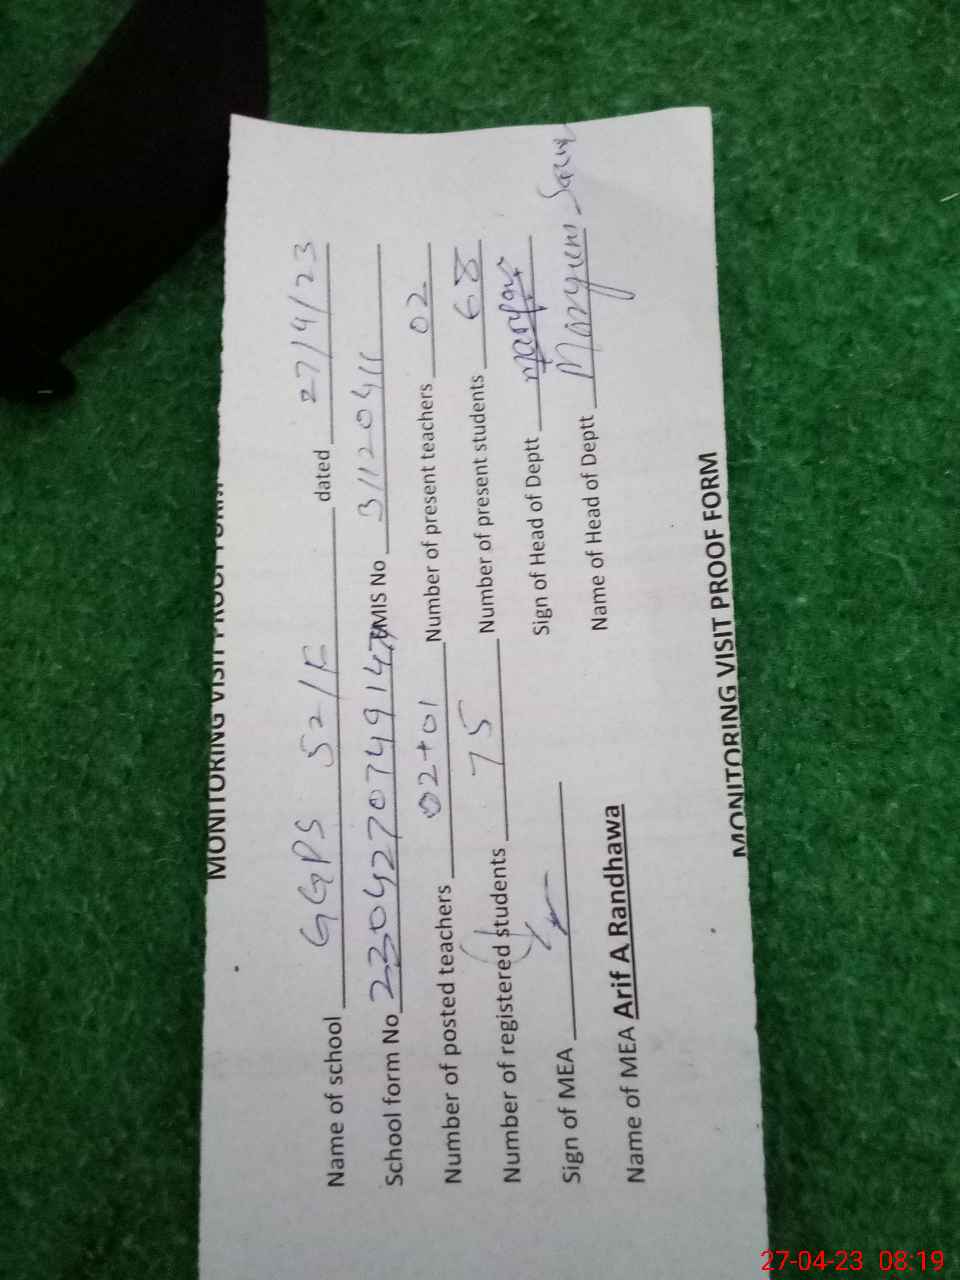 MONITORING VISIT PROOF FORM
Name of school GGPS 52/F dated 27/4/23
School form No EMIS No 31120411
Number of posted teachers 02+01 Number of present teachers 02
Number of registered students 75 Number of present students 68
Sign of MEA Sign of Head of Deptt
Name of MEA Arif A Randhawa Name of Head of Deptt
MONITORING VISIT PROOF FORM
27-04-23 08:19